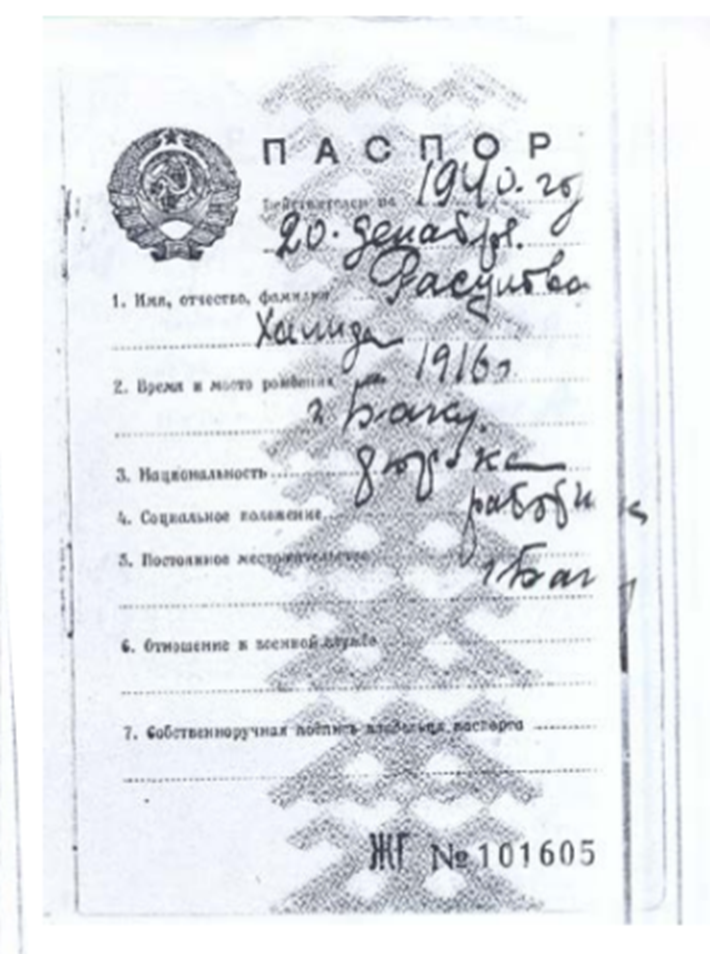 ПАСПОР
Действителен по 1940. го
20. декабря.
1. Имя, отчество, фамилия Расулова
Халида
2. Время и место рождения 1916 г.
г. Баку.
3. Национальность тюрчка
4. Социальное положение
5. Постоянное местожительство г. Баку
6. Отношение к военной службе
7. Собственноручная подпись владельца паспорта
ЖГ № 101605